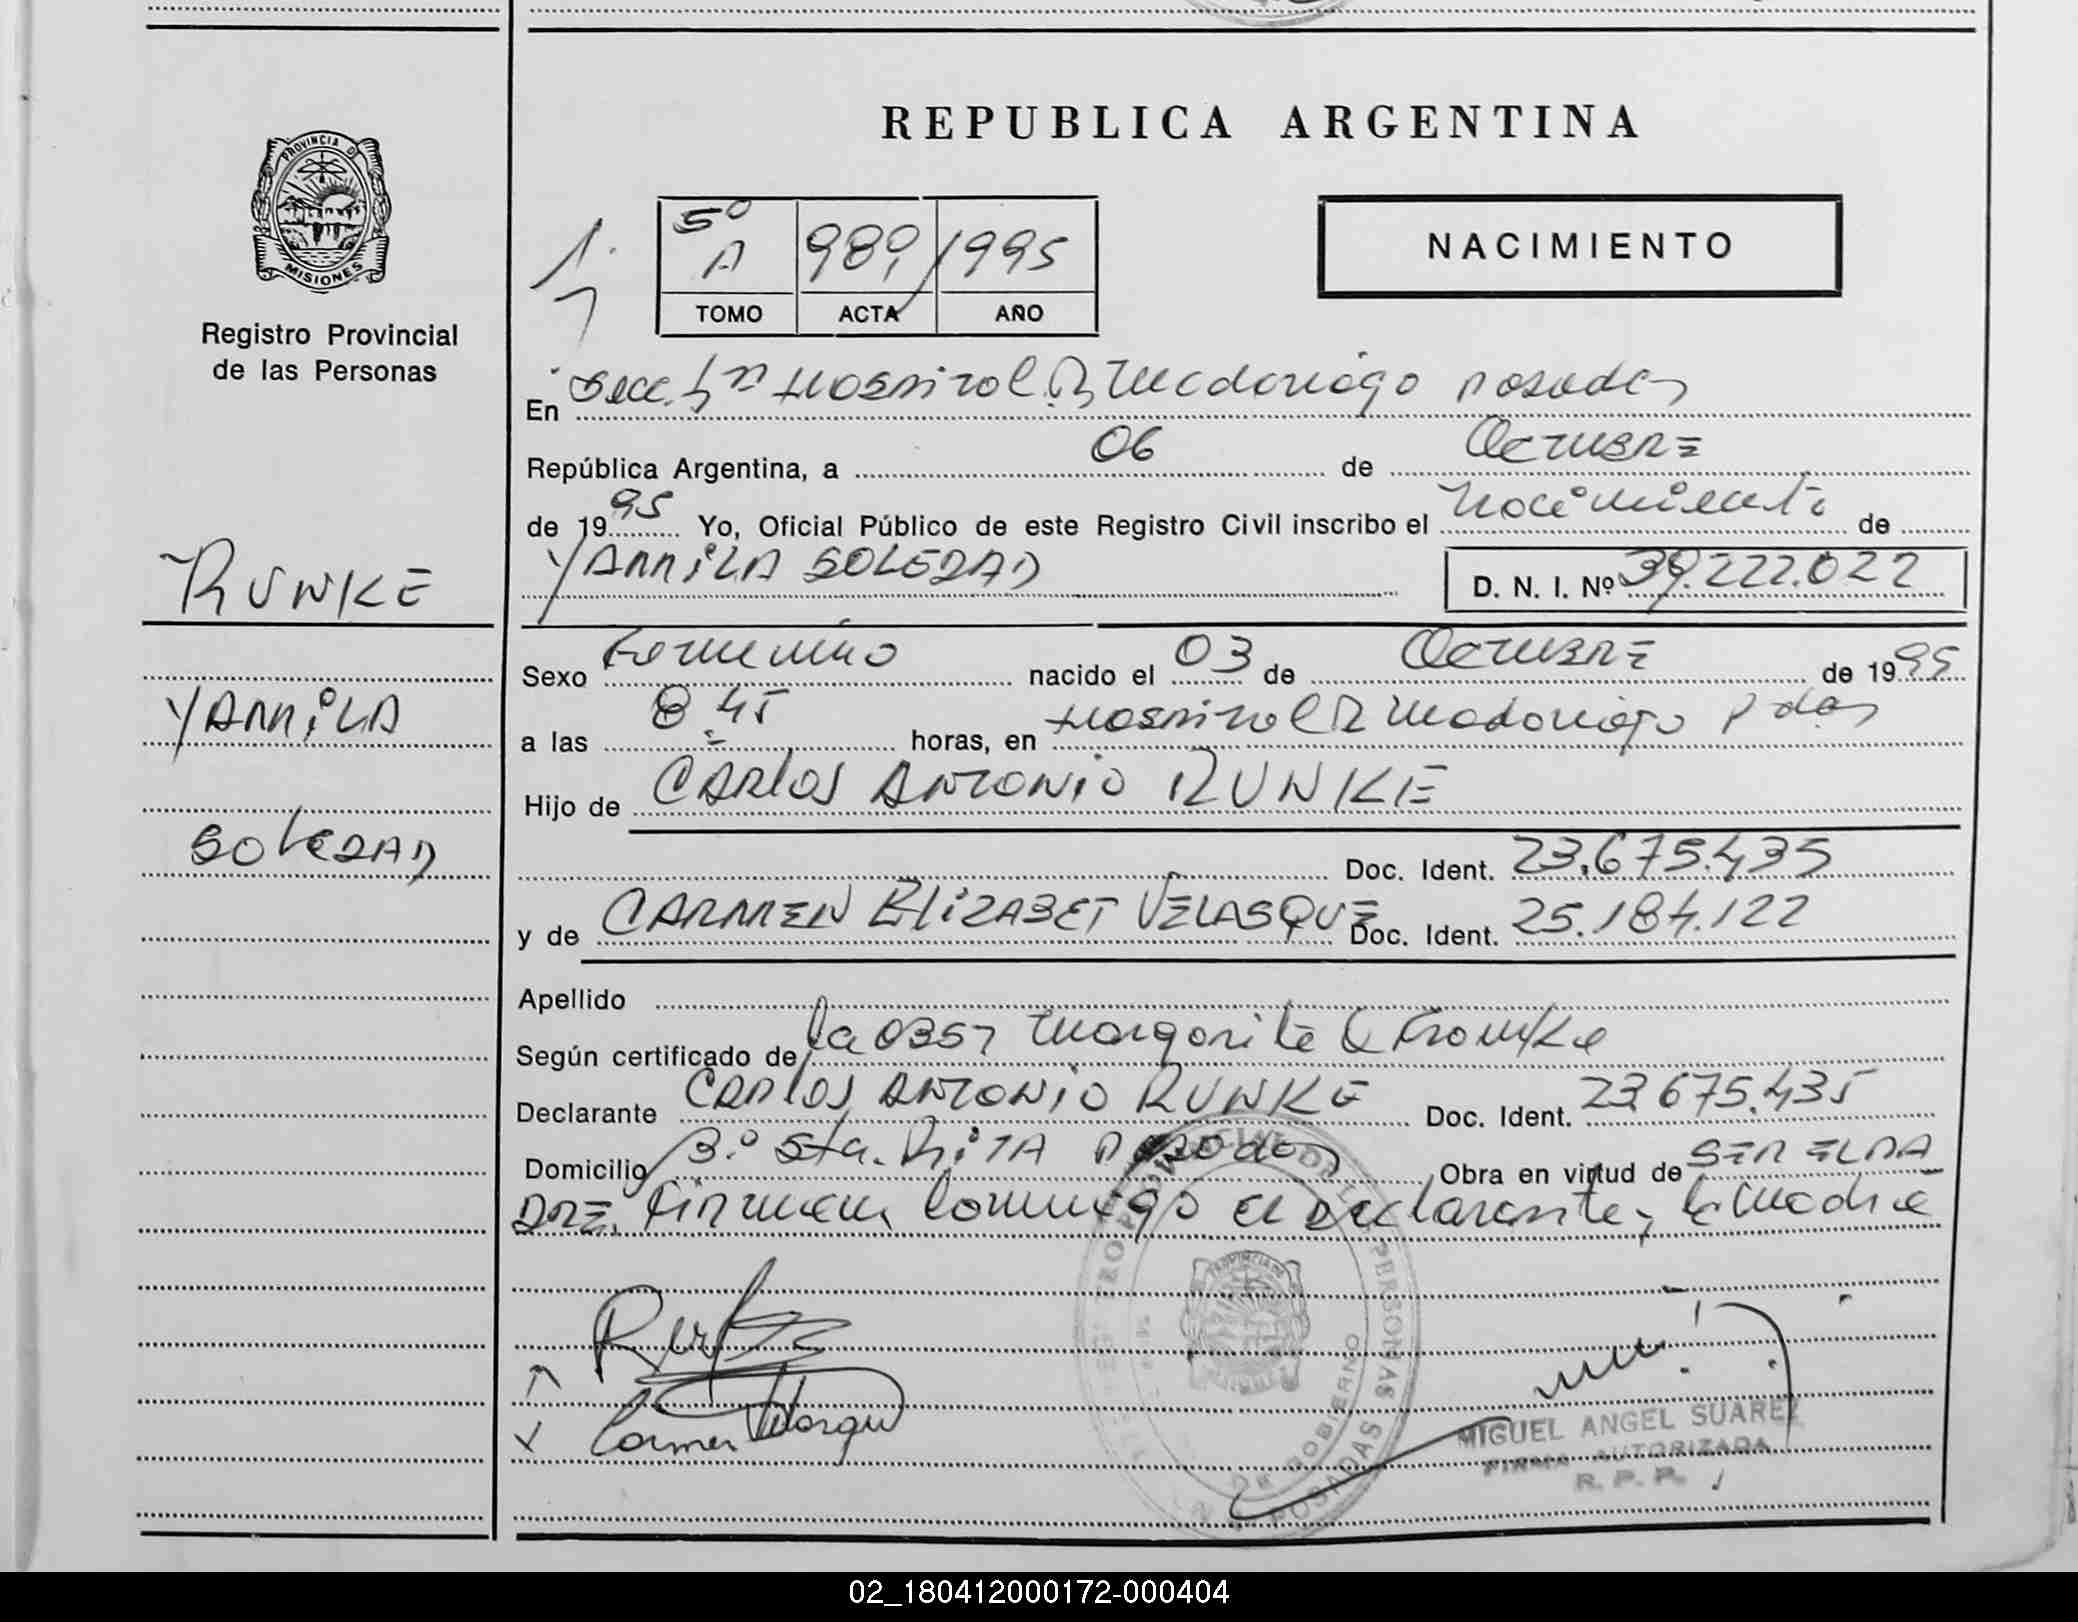 REPUBLICA ARGENTINA
PROVINCIA DE MISIONES
Registro Provincial
de las Personas
5º A 989 1995
TOMO ACTA AÑO
NACIMIENTO
En Secc. Hospital R Madariaga Posadas
República Argentina, a 06 de Octubre
de 1995 Yo, Oficial Público de este Registro Civil inscribo el Nacimiento de
YAMILA SOLEDAD D. N. I. Nº 39.222.022
RUNKE
YAMILA
SOLEDAD
Sexo Femenino nacido el 03 de Octubre de 1995
a las 8 45 horas, en Hospital R Madariaga Pdas
Hijo de CARLOS ANTONIO RUNKE
Doc. Ident. 23.675.435
y de CARMEN ELIZABET VELASQUE Doc. Ident. 25.184.122
Apellido
Según certificado de la Margarita
Declarante CARLOS ANTONIO RUNKE Doc. Ident. 23.675.435
Domicilio Bº Sta. RITA Posadas Obra en virtud de SER EL PA
DRE. Firman conmigo el declarante y la Madre
Carmen Velasque
REGISTRO PROVINCIAL DE LAS PERSONAS
PROVINCIA DE
DE GOBIERNO
POSADAS
MIGUEL ANGEL SUAREZ
FIRMA AUTORIZADA
R. P. P.
02_180412000172-000404